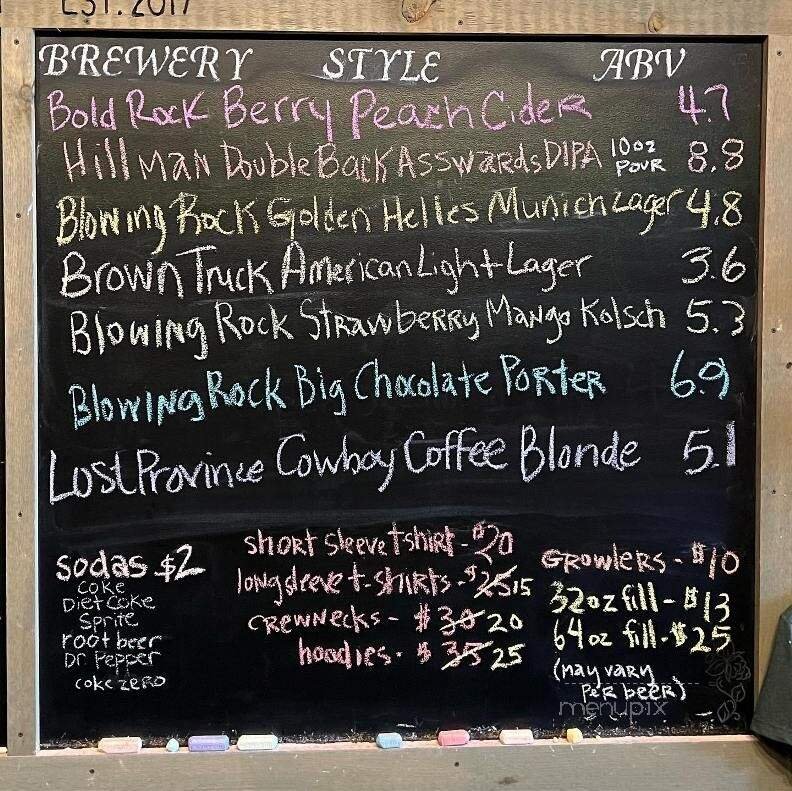 EST. 2017
BREWERY STYLE ABV
Bold Rock Berry Peach Cider 4.7
Hillman Double Back Asswards DIPA 10oz POUR 8.8
Blowing Rock Golden Helles Munich Lager 4.8
Brown Truck American Light Lager 3.6
Blowing Rock Strawberry Mango Kolsch 5.3
Blowing Rock Big Chocolate Porter 6.9
Lost Province Cowboy Coffee Blonde 5.1
sodas $2
coke
Diet Coke
Sprite
root beer
Dr Pepper
coke zero
short sleeve t shirt - $20
long sleeve t-shirts - $25 15
crewnecks - $30 20
hoodies - $35 25
Growlers - $10
32oz fill - $13
64oz fill - $25
(may vary
per beer)
menupix